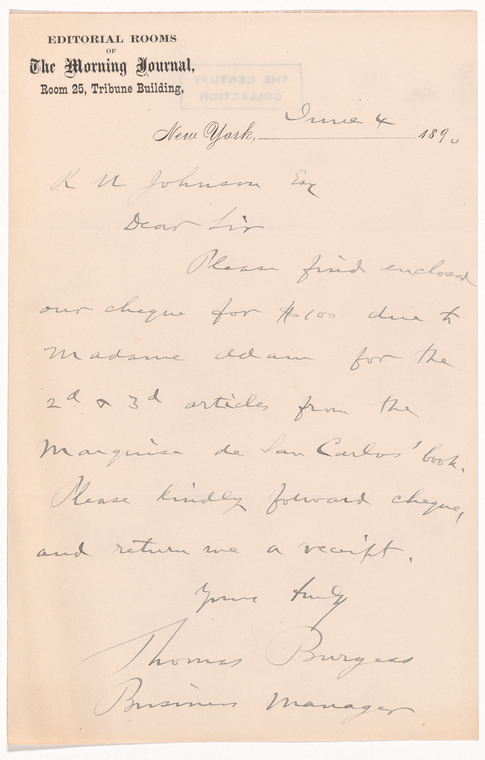 EDITORIAL ROOMS
OF
The Morning Journal,
Room 25, Tribune Building,
THE CENTURY
COLLECTION
New York, June 4 1890
R U Johnson Esq
Dear Sir
Please find enclosed
our cheque for $100 due to
Madame Adam for the
2d & 3d articles from the
Marquise de San Carlos' book.
Please kindly forward cheque,
and return me a receipt.
Yours truly
Thomas Burgess
Business Manager